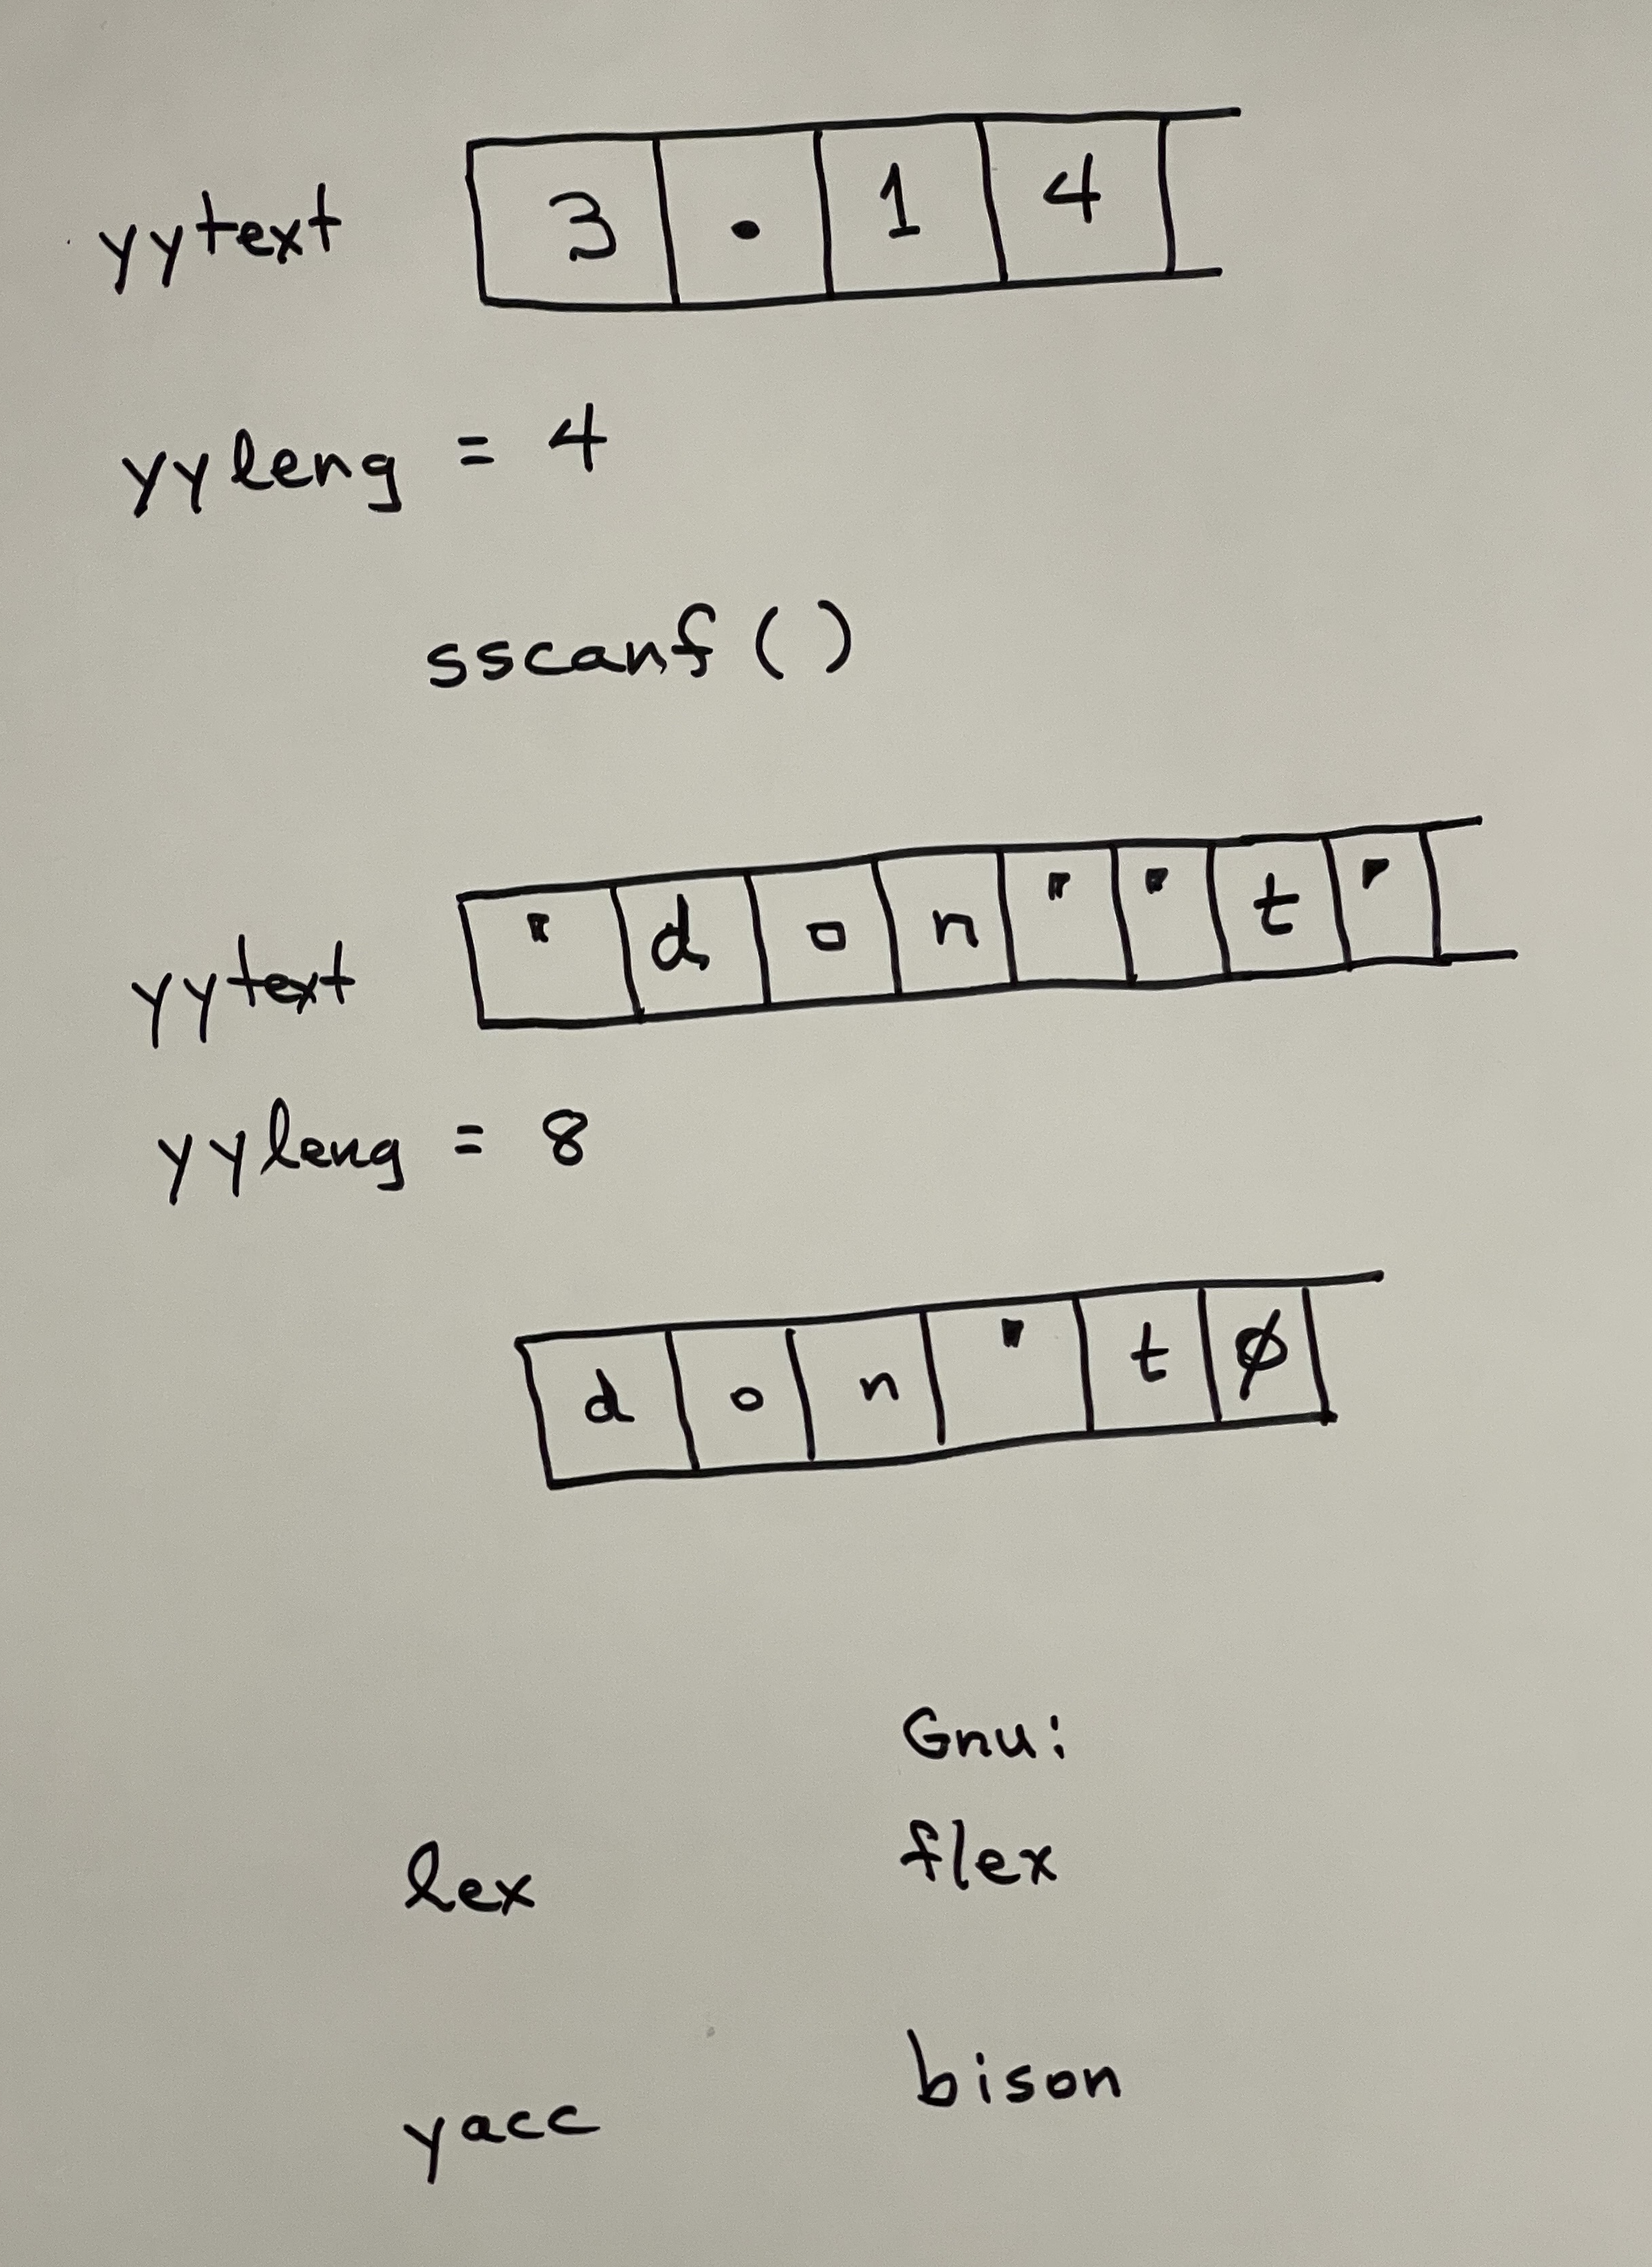 yytext 3 . 1 4
yyleng = 4
sscanf ( )
yytext " d o n " " t "
yyleng = 8
d o n " t ∅
Gnu:
lex flex
yacc bison